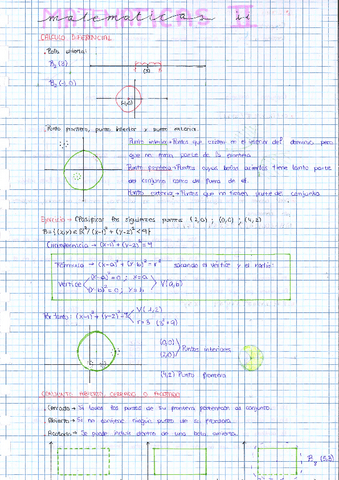 MATEMATICAS II
CALCULO DIFERENCIAL
. Bola abierta:
B₂(3)
(3)
B₂(-1,0)
. Punto frontera, punto interior y punto exterior
Punto interior → Puntos que están en el interior del dominio pero
que no tocan parte de la frontera
Punto frontera → Puntos cuyas bolas abiertas tiene tanto parte
del conjunto como de fuera de él.
Punto exterior → Puntos que no tienen parte del conjunto
Ejercicio → Clasificar los siguientes puntos (2,0); (0,0); (4,2)
(x-1)²+(y-2)²<9}
Circunferencia → (x-1)²+(y-2)²=9
Fórmula → (x-a)²+(y-b)²=r² siendo el vértice y el radio:
Vértice (x-a)²=0; x=a
(y-b)²=0; y=b
V(a,b)
Por tanto: (x-1)²+(y-2)²=9 V(1,2)
r=3 (3²=9)
(0,0)
(2,0)
Puntos interiores
(4,2) Punto frontera
CONJUNTO ABIERTO, CERRADO O ACOTADO
. Cerrado → Si todos los puntos de su frontera pertenecen al conjunto.
. Abierto → Si no contiene ningún punto de su frontera.
. Acotado → Se puede incluir dentro de una bola abierta.